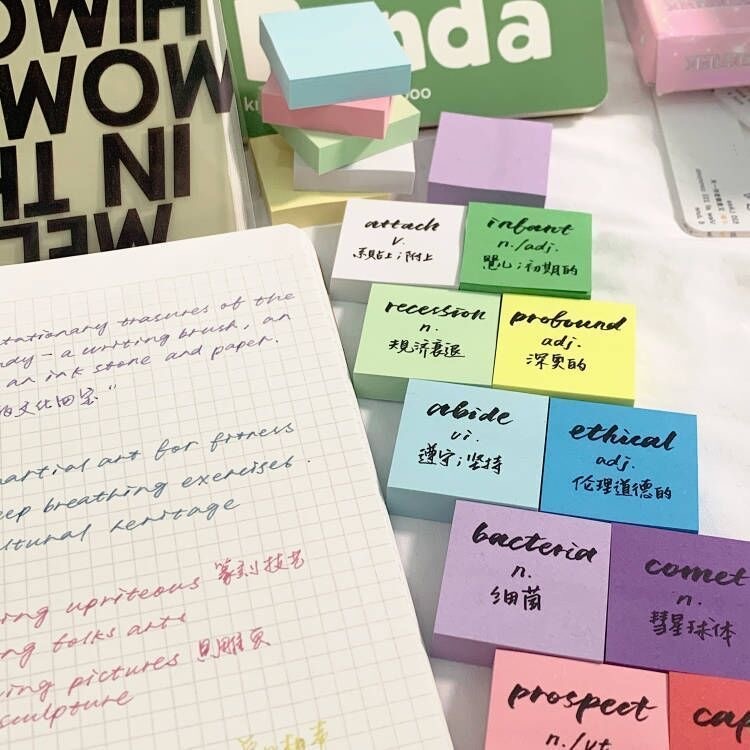 HIMO
MOM
IN
TH
MEL
Panda
ki
oo
attach
v.
系贴上;附上
infant
n./adj.
婴儿;初期的
recession
n.
规济衰退
profound
adj.
深奥的
abide
vi.
遵守;坚持
ethical
adj.
伦理道德的
bacteria
n.
细菌
comet
n.
彗星球体
prospect
n./vt
cap
tationary trasures of the
dy - a writing brush, an
an ink stone and paper.
的文化四宝"
artial art for fitness
eep breathing exercises.
ltural heritage
ing upriteous 篆刻技艺
ng folks arts
ing pictures
sculpture